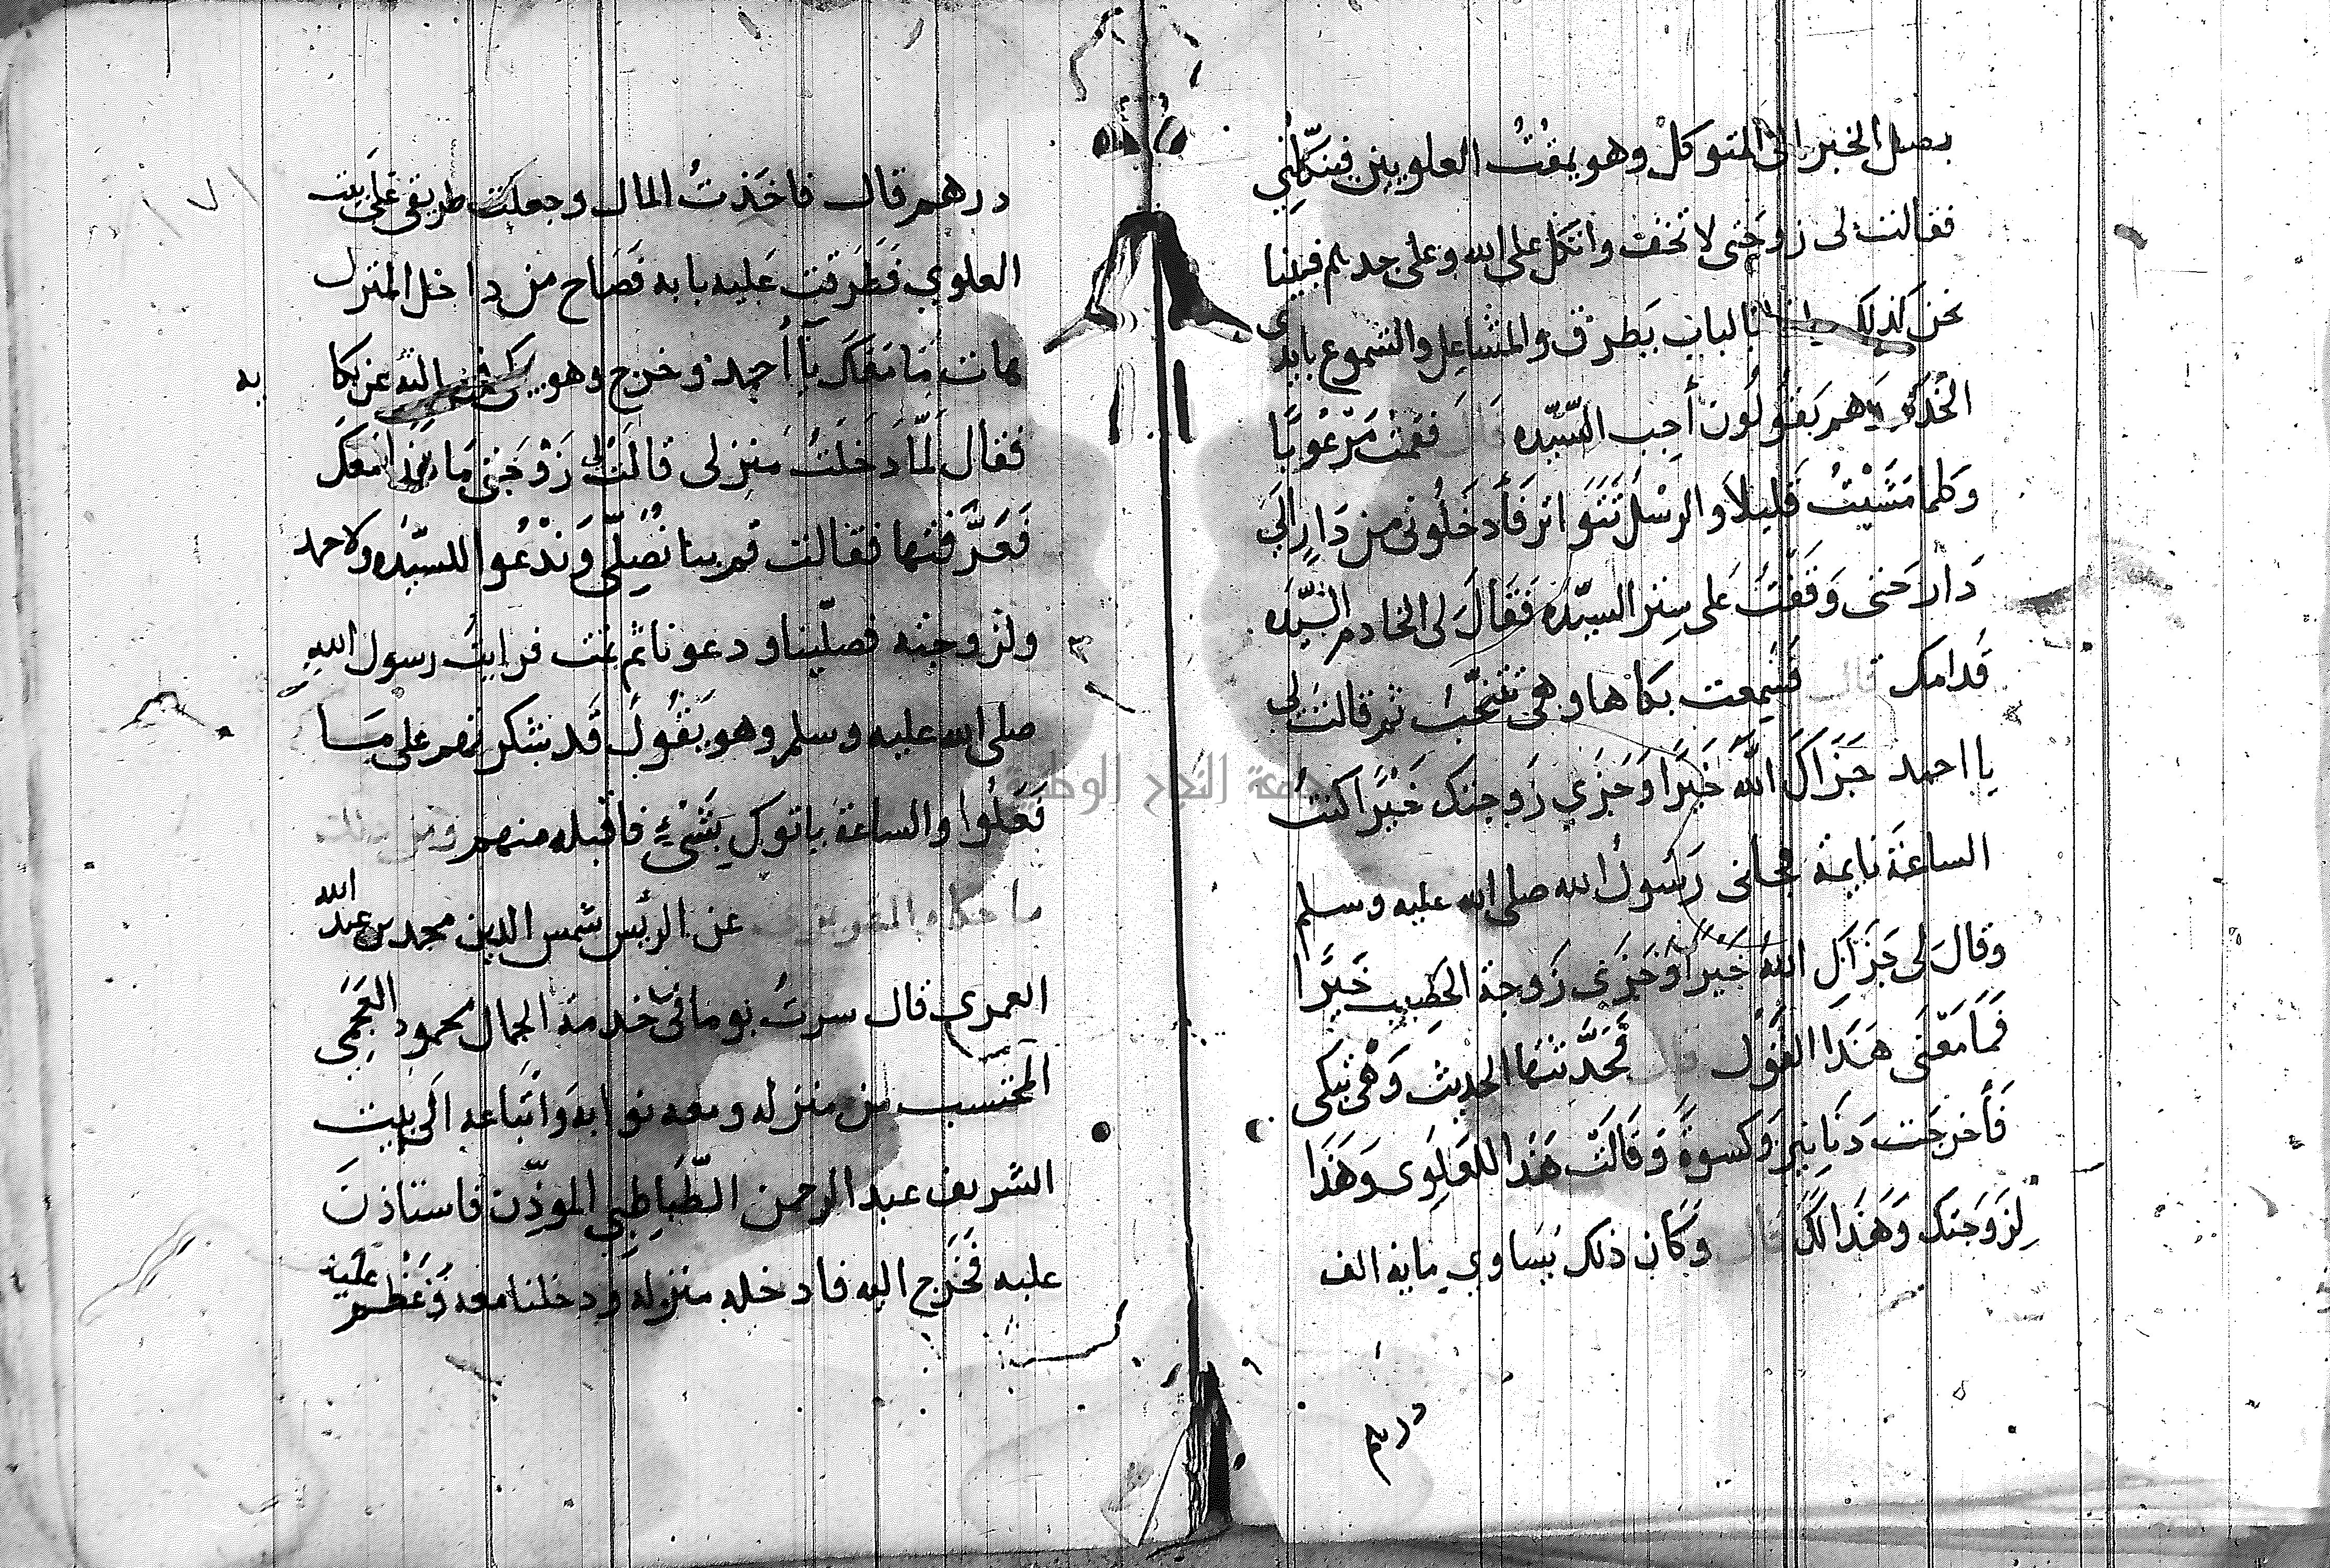 يصل الخبر الى المتوكل وهو يمقُتُ العلويين فينكّلني
فقالت لى زوجتى لا تخف واتكل على الله وعلى جدهم فبينا
نحن كذلك بالباب يطرق والمشاعل والشموع بايدى
الخدم وهم يَقُولُون أجب السّيّده فقمت مَرْعُوبًا
وكلما مَشَيْتُ قليلاً والرسْل تَتَواتر فأدخَلُونى من دَارٍ الَى
دَار حَتى وَقَفْتُ عَلى سِتر السيّدَه فَقَالَ لى الخادم السّيّدَه
قدامك قال فَسَمِعت بكاها وهى تنتحّبُ ثم قالت لى
يا احمد جَزَاكَ اللَّهُ خَيْرًا وَجَزَي زَوجتك خَيْرًا كنتُ
الساعَة نايمة فجانى رَسُولُ الله صلى الله عليه وسلم
وقالَ لى جَزَاكِ اللهُ خَيرًا وَجَزَى زَوجة الخَصِيب خَيْرًا
فَمَا مَعْنَى هَذَا القَوْل قال فَحَدَّثتها الحديث وَهْى تبكى
فَأخرجَت دَنَانِيرَ وَكسوةً وَقَالَتْ هَذا للعَلَوِى وَهَذَا
لِزَوجَتك وَهَذا لَكَ قال وَكَان ذلك يُسَاوي ماية الف
درهم
درهم قال فاخَذتُ المال وجعلت طريقى عَلَى بيت
العلوي فَطَرقت عَليه بابه فَصَاح من داخل المنزل
هات مَا مَعَكَ يَا أحمد وخرج وهو يبكى اليه عن بكا
به
فقال لَمَّا دَخَلتُ منزلى قالَتْ لى زَوْجَتى مَا هَذا مَعكَ
فَعَرَّفتها فقالت قم بنا نُصَلّي وَنَدْعُوا للسّيّده ولاحمد
ولزوجته فصلّينا ودعونا ثم نمت فرايتُ رسول الله
صلى الله عليه وسلم وهو يَقُولُ قَد شكرتهم على مَا
فَعَلُوا والساعة ياتوك بِشَىْءٍ فاقبله منهم
ما حكاه المقريزى عن الريّس شمس الدين محمد بن عبد الله
العمرى قال سرتُ يوما فى خدمة الجمال محمود العَجَمِى
المحتسب من منزله ومعه نوابه وَاتباعه الَى بيت
الشريف عبد الرحمن الطّبَاطِبى المؤذّن فاستاذنَ
عليه فَخَرَج اليه فادخله منزله ودخلنا معه وَعَظُم عليه